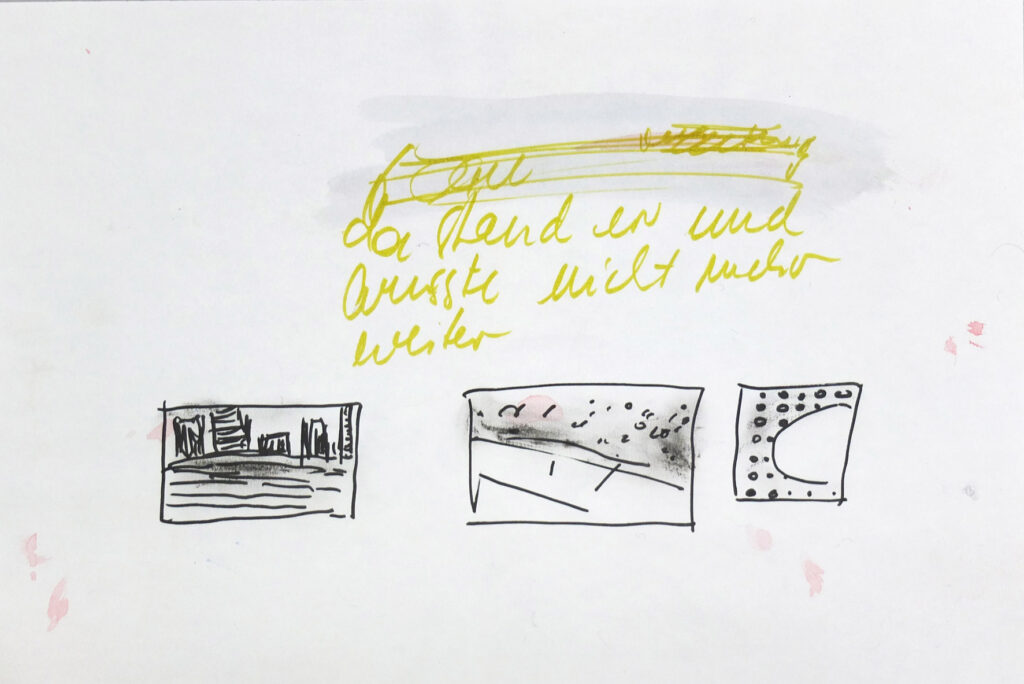 da stand er und
wusste nicht mehr
weiter